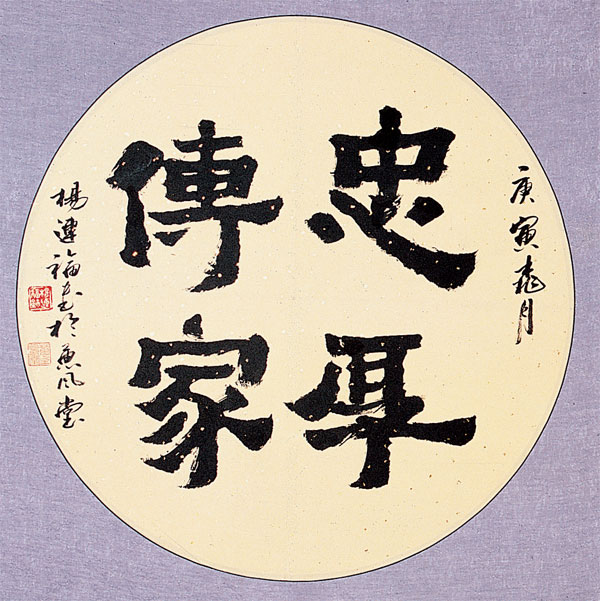 庚寅春月
忠厚
傳家
楊連福書於蕙風堂